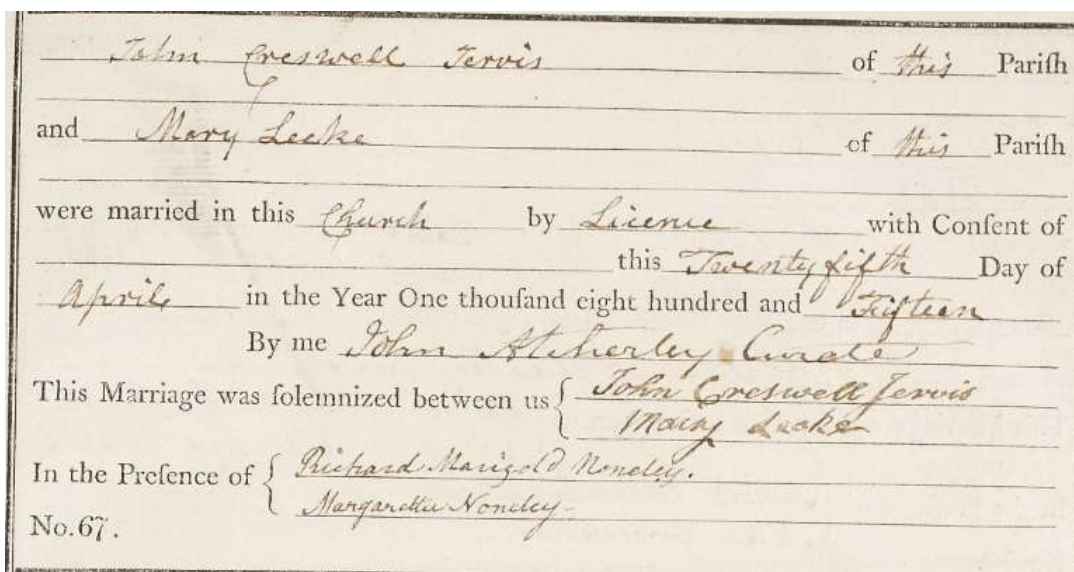 John Creswell Jervis of this Pariſh
and Mary Leeke of this Pariſh
were married in this Church by Licence with Conſent of
this Twenty fifth Day of
April in the Year One thouſand eight hundred and Fifteen
By me John Atcherley Curate
This Marriage was ſolemnized between us { John Creswell Jervis
Mary Leeke
In the Preſence of { Richard Marigold Noneley.
Margaretta Noneley
No. 67.